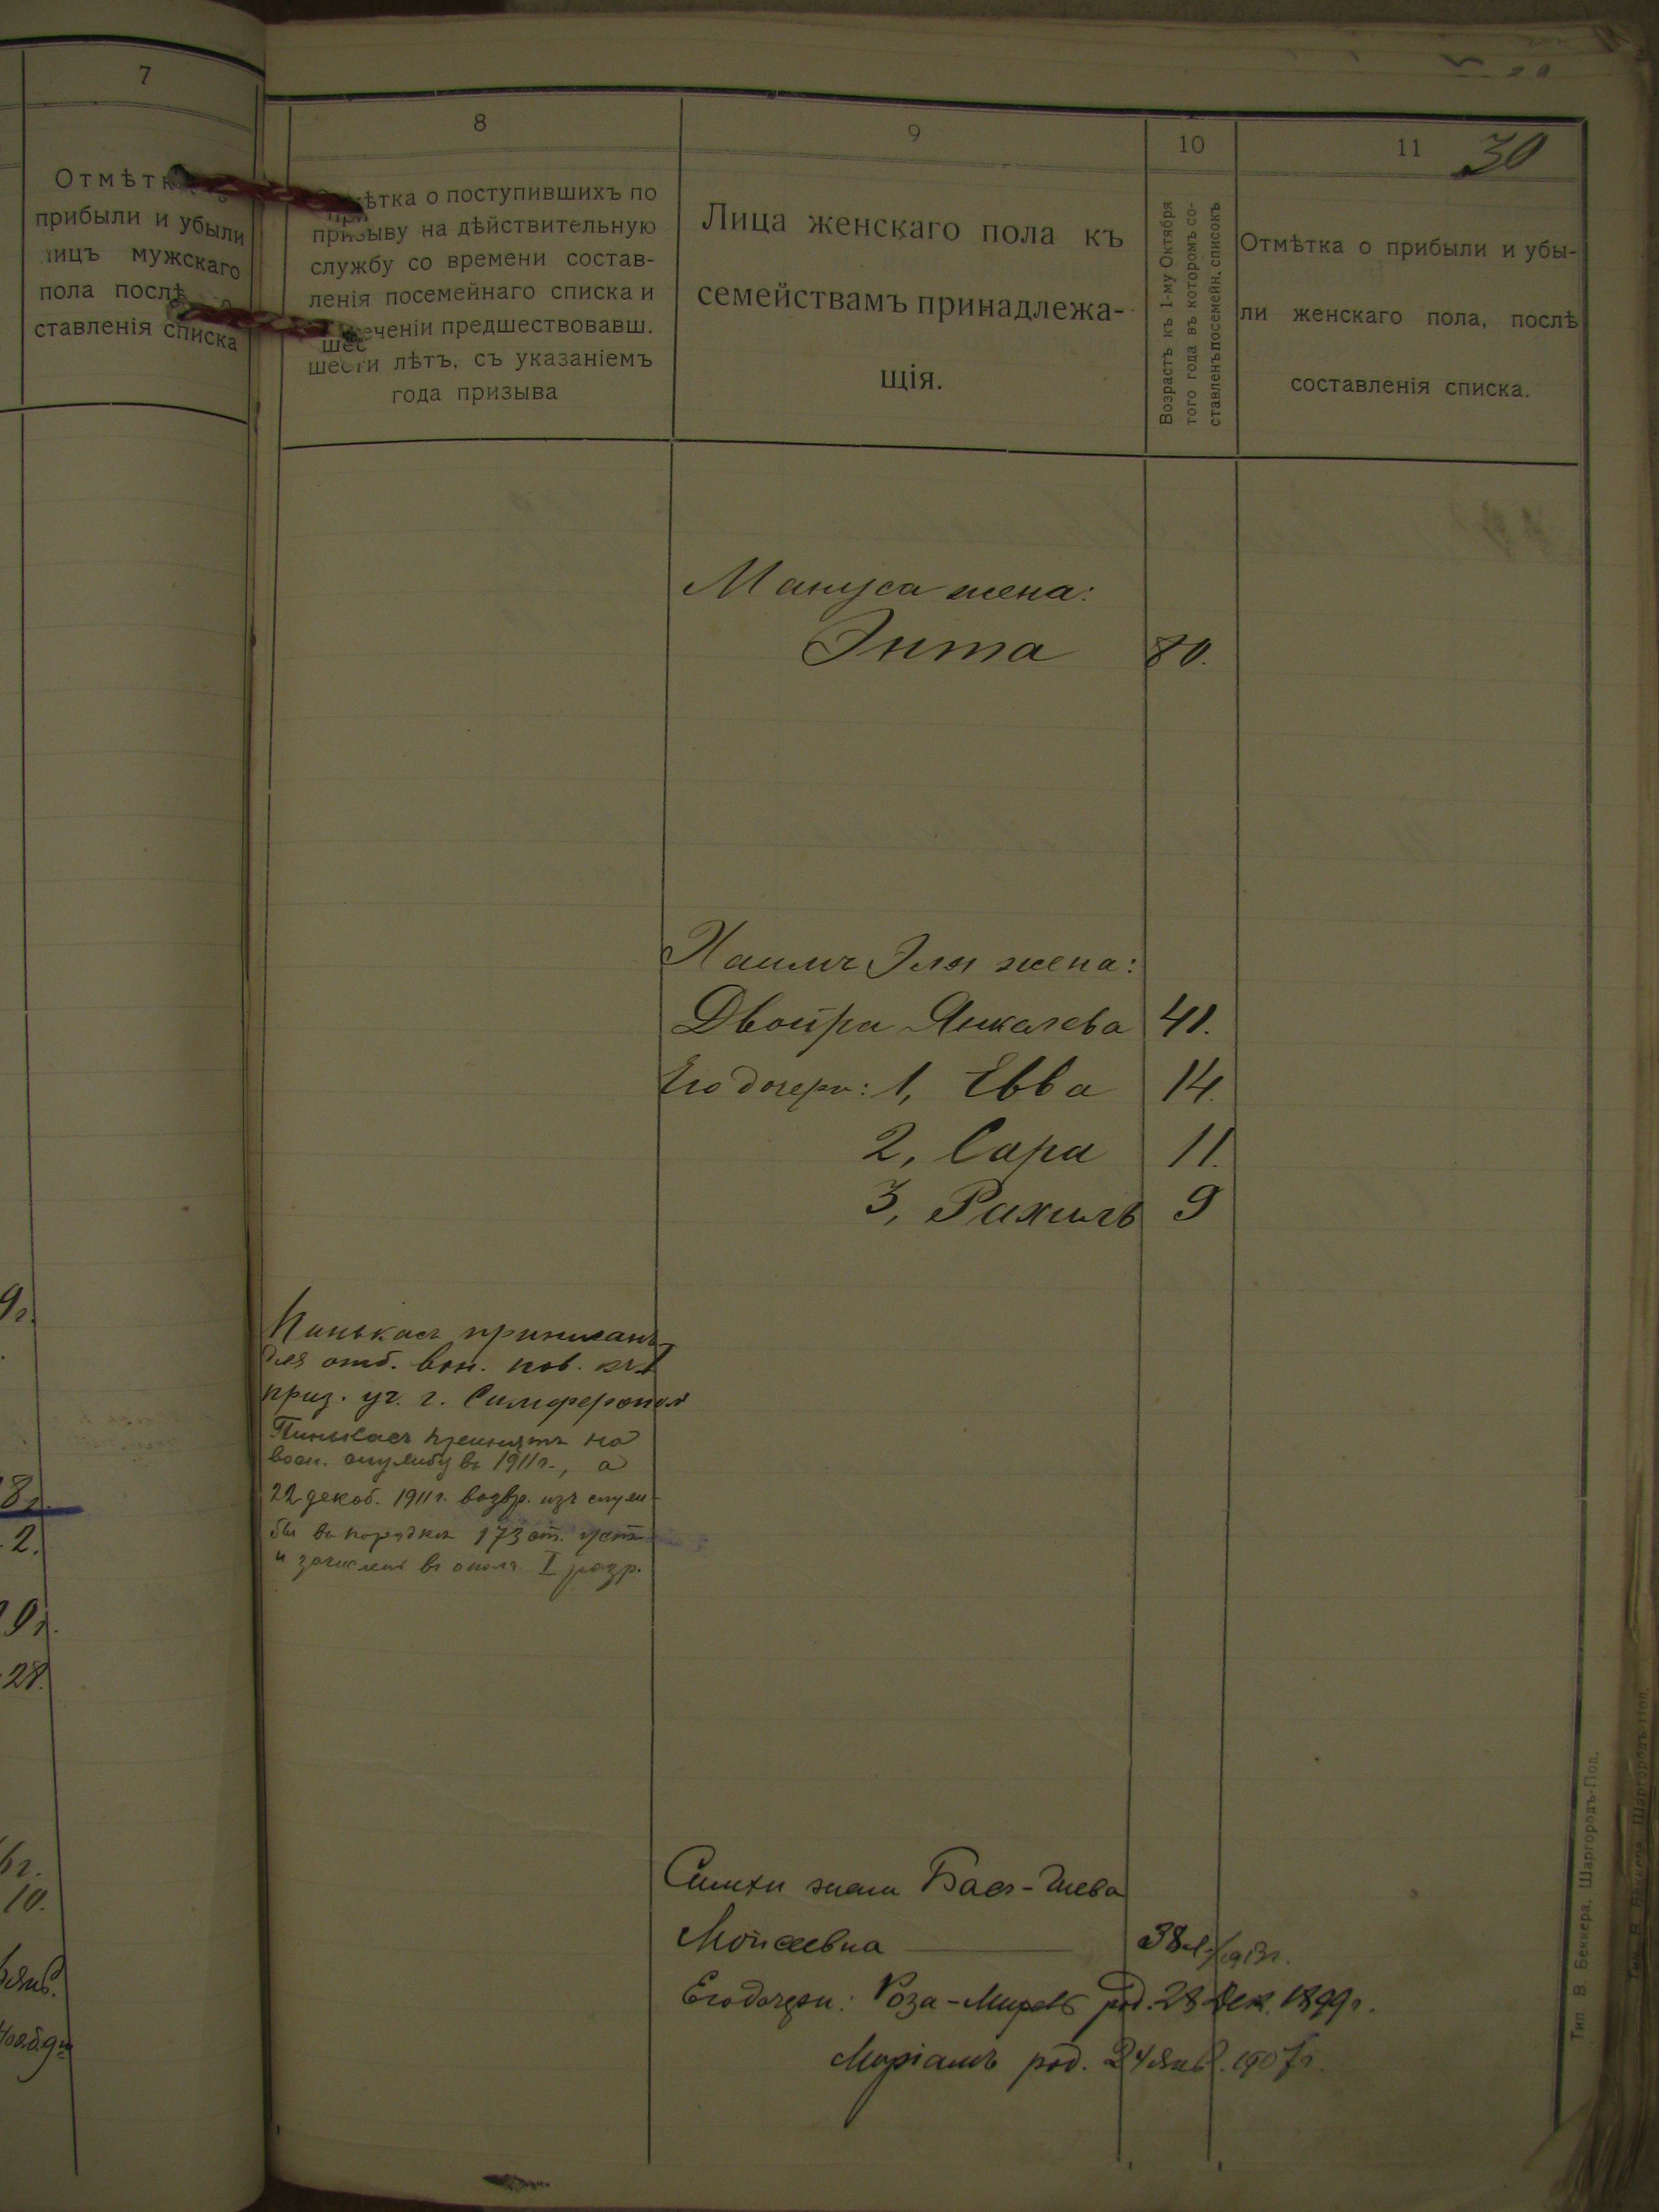 7
Отмѣтк
прибыли и убыли
лицъ мужскаго
пола послѣ
ставленія списка
9г.
8г.
2.
9г.
28.
6г.
10.
8
ѣтка о поступившихъ по
призыву на дѣйствительную
службу со времени состав-
ленія посемейнаго списка и
теченіи предшествовавш.
шести лѣтъ, съ указаніемъ
года призыва
9
Лица женскаго пола къ
семействамъ принадлежа-
щія.
10
Возрастъ къ 1-му Октября
того года въ которомъ со-
ставленъ посемейн. списокъ
11
30
Отмѣтка о прибыли и убы-
ли женскаго пола, послѣ
составленія списка.
Мануса жена:
Энта 80.
Хаимъ Эля жена:
Двойра Янкелева 41.
Его дочери: 1, Евва 14.
2, Сара 11.
3, Рахиль 9
Пинькасъ приписанъ
для отб. вои. пов. къ I
приз. уч. г. Симферополя
Пинькасъ принятъ на
воен. службу въ 1911 г., а
22 декаб. 1911 г. возвр. изъ служ-
бы въ порядкѣ 173 ст. уст.
и зачисленъ въ ополч. I разр.
Симхи жена Бася-Элева
Моисеевна 38 л. 1913 г.
Его дочери: Роза-Мирель род. 28 Дек. 1899 г.
Маріамъ род. 24 Янв. 1907 г.
Тип. В. Беккера, Шаргородъ-Под.